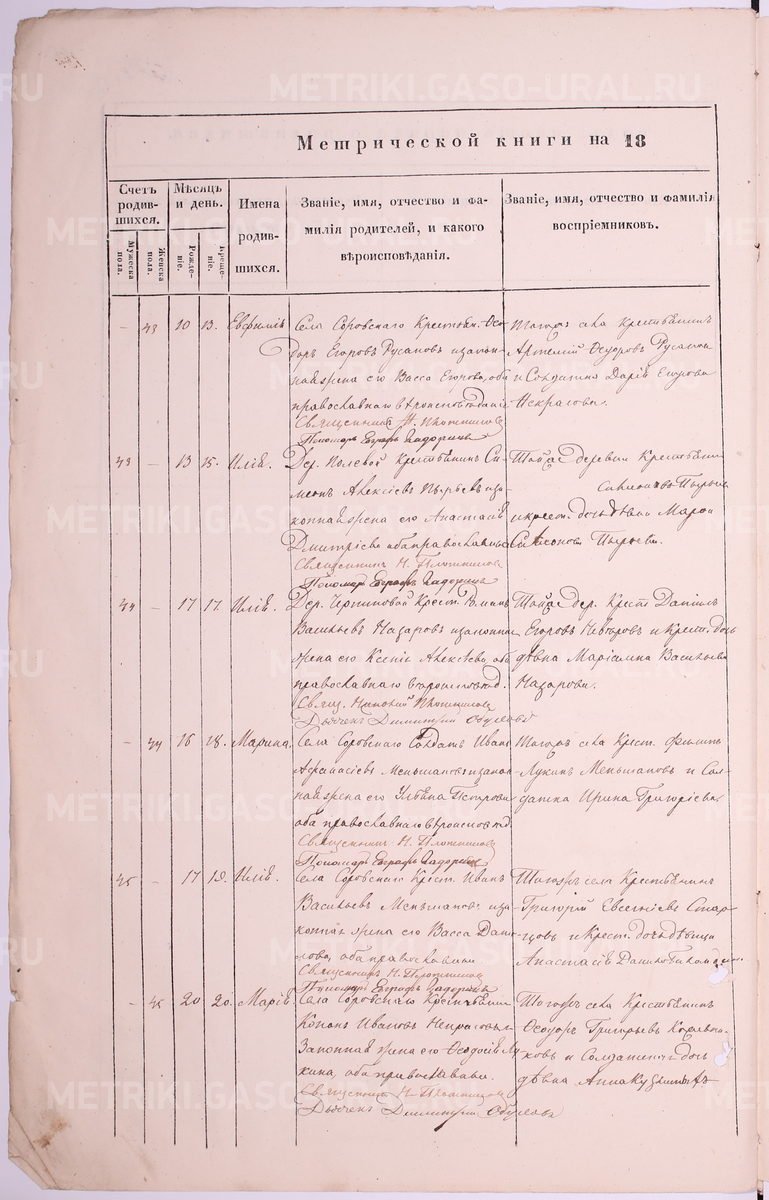 METRIKI.GASO-URAL.RU
Метрической книги на 18
Счетъ родив-шихся.
Мужеска пола.
Женска пола.
Мѣсяцъ и день.
Рожде-ніе.
Креще-ніе.
Имена родив-шихся.
Званіе, имя, отчество и фа-
милія родителей, и какого
вѣроисповѣданія.
Званіе, имя, отчество и фамилія
воспріемниковъ.
– 43 10 13. Евфимія
Села Соровскаго Крестьян. Ѳео-
доръ Егоровъ Русановъ и закон-
ная жена его Васса Егорова, оба
православнаго вѣроисповѣданія
Священникъ Н. Плотниковъ
Пономарь Евграфъ
Тогоже села Крестьянинъ
Артемій Ѳедоровъ Русановъ
и Солдатка Дарія Егорова
Некрасова.
43 – 13 15. Илія.
Дер. Полевой Крестьянинъ Си-
меонъ Алексіевъ Пырьевъ и за-
конная жена его Анастасія
Дмитріева оба православные
Священникъ Н. Плотниковъ
Пономарь Евграфъ
Тойже деревни Крестьянинъ
и крест. дочь дѣвка Марѳа
Симеонова Пырьева.
44 – 17 17. Илія.
Дер. Крест.
Васильевъ Назаровъ и законная
жена его Ксенія Алексѣева, оба
православнаго вѣроисповѣд.
Свящ. Николай Плотниковъ
Дьячекъ Димитрій
Тойже дер. Крест. Даніилъ
Егоровъ и Крест. дочь
дѣвка Маріамна Васильева
Назарова.
– 44 16 18. Марина.
Села Соровскаго Солдатъ Иванъ
Афанасіевъ Меньшаковъ и закон-
ная жена его Ульяна Петрова
оба православнаго вѣроисповѣд.
Священникъ Н. Плотниковъ
Пономарь Евграфъ
Тогоже села Крест. Филиппъ
Лукинъ Меньшаковъ и Сол-
датка Ирина Григоріева
45 – 17 19. Илія.
Села Соровскаго Крест. Иванъ
Васильевъ Меньшаковъ и за-
конная жена его Васса Дани-
лова, оба православнаи
Священникъ Н. Плотниковъ
Пономарь Евграфъ
Тогожъ села Крестьянинъ
Григорій Евсегніевъ Стар-
цовъ и Крест. дочь дѣвица
Анастасія
– 45 20 20. Марія.
Села Соровскаго Крестьянинъ
Кононъ Ивановъ Некрасовъ и
Законная жена его Ѳеодосія Лу-
кина, оба православнаи.
Священникъ Н. Плотниковъ
Дьячекъ Димитрій
Тогожъ села Крестьянинъ
Ѳеодоръ Григорьевъ
ковъ и Солдатская дочь
дѣвка Анна